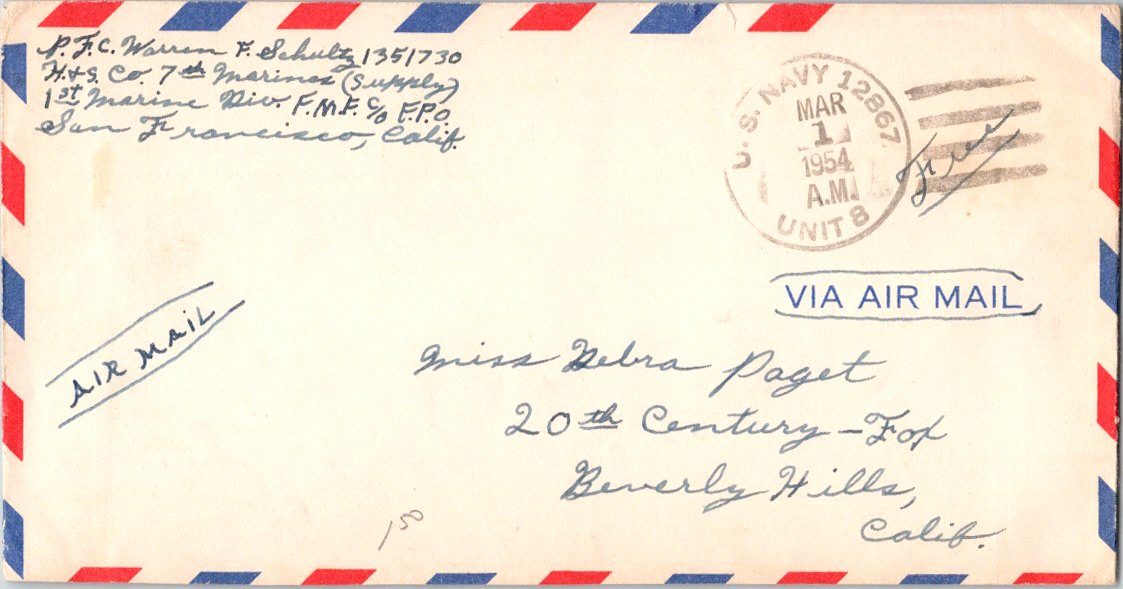 P.F.C. Warren F. Schultz 1351730
H.&S. Co. 7th Marines (Supply)
1st Marine Div. F.M.F. c/o F.P.O.
San Francisco, Calif.
U.S. NAVY 12867
MAR
1
1954
A.M.
UNIT 8
Free
VIA AIR MAIL
AIR MAIL
Miss Debra Paget
20th Century-Fox
Beverly Hills,
Calif.